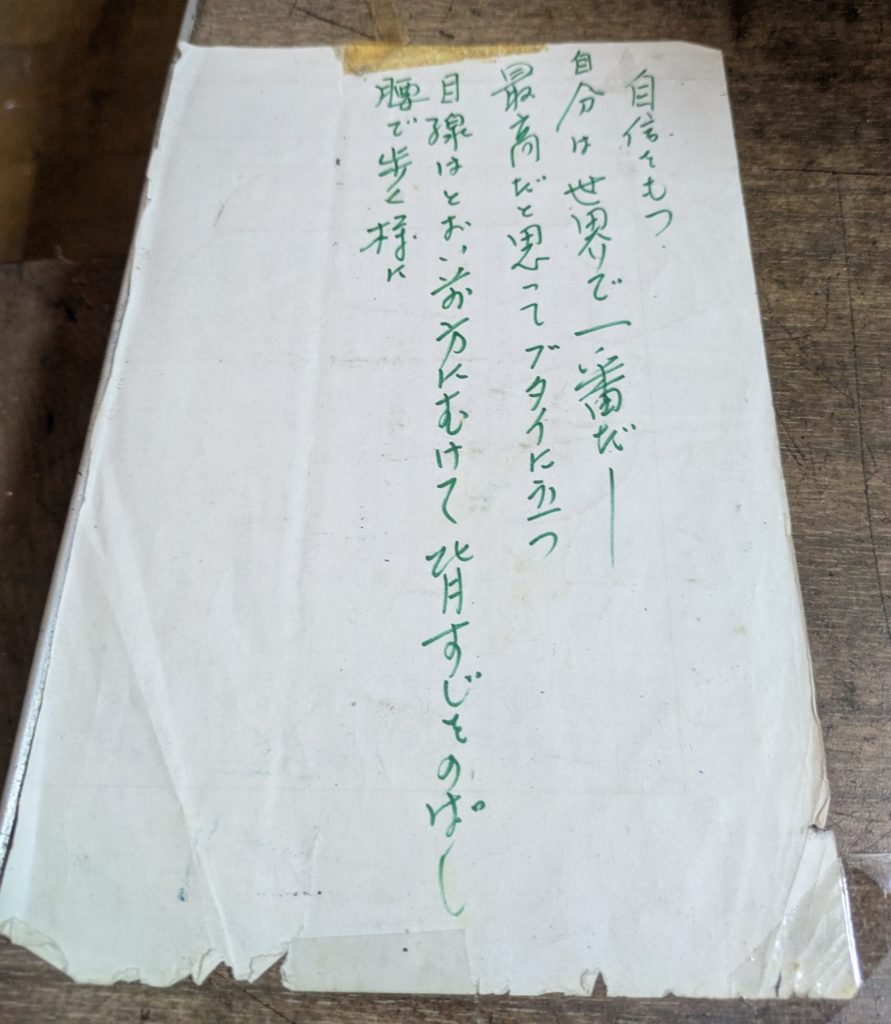 自信をもつ
自分は世界で一番だー
最高だと思ってブタイに立つ
目線はとおい前方にむけて背すじをのぱし
腰で歩く様に